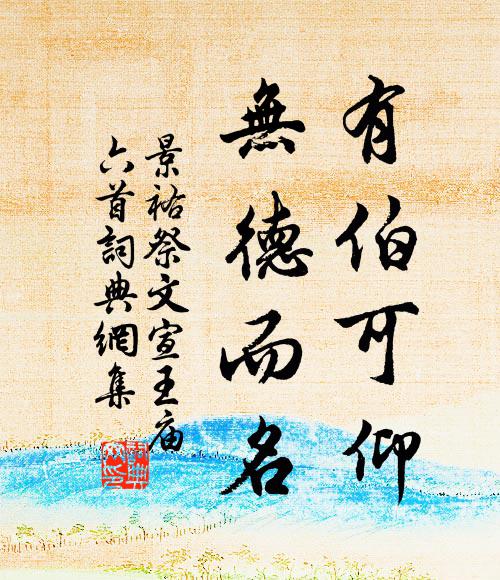 有伯可仰
無德而名
景祐祭文宣王庙
六首詞典網集